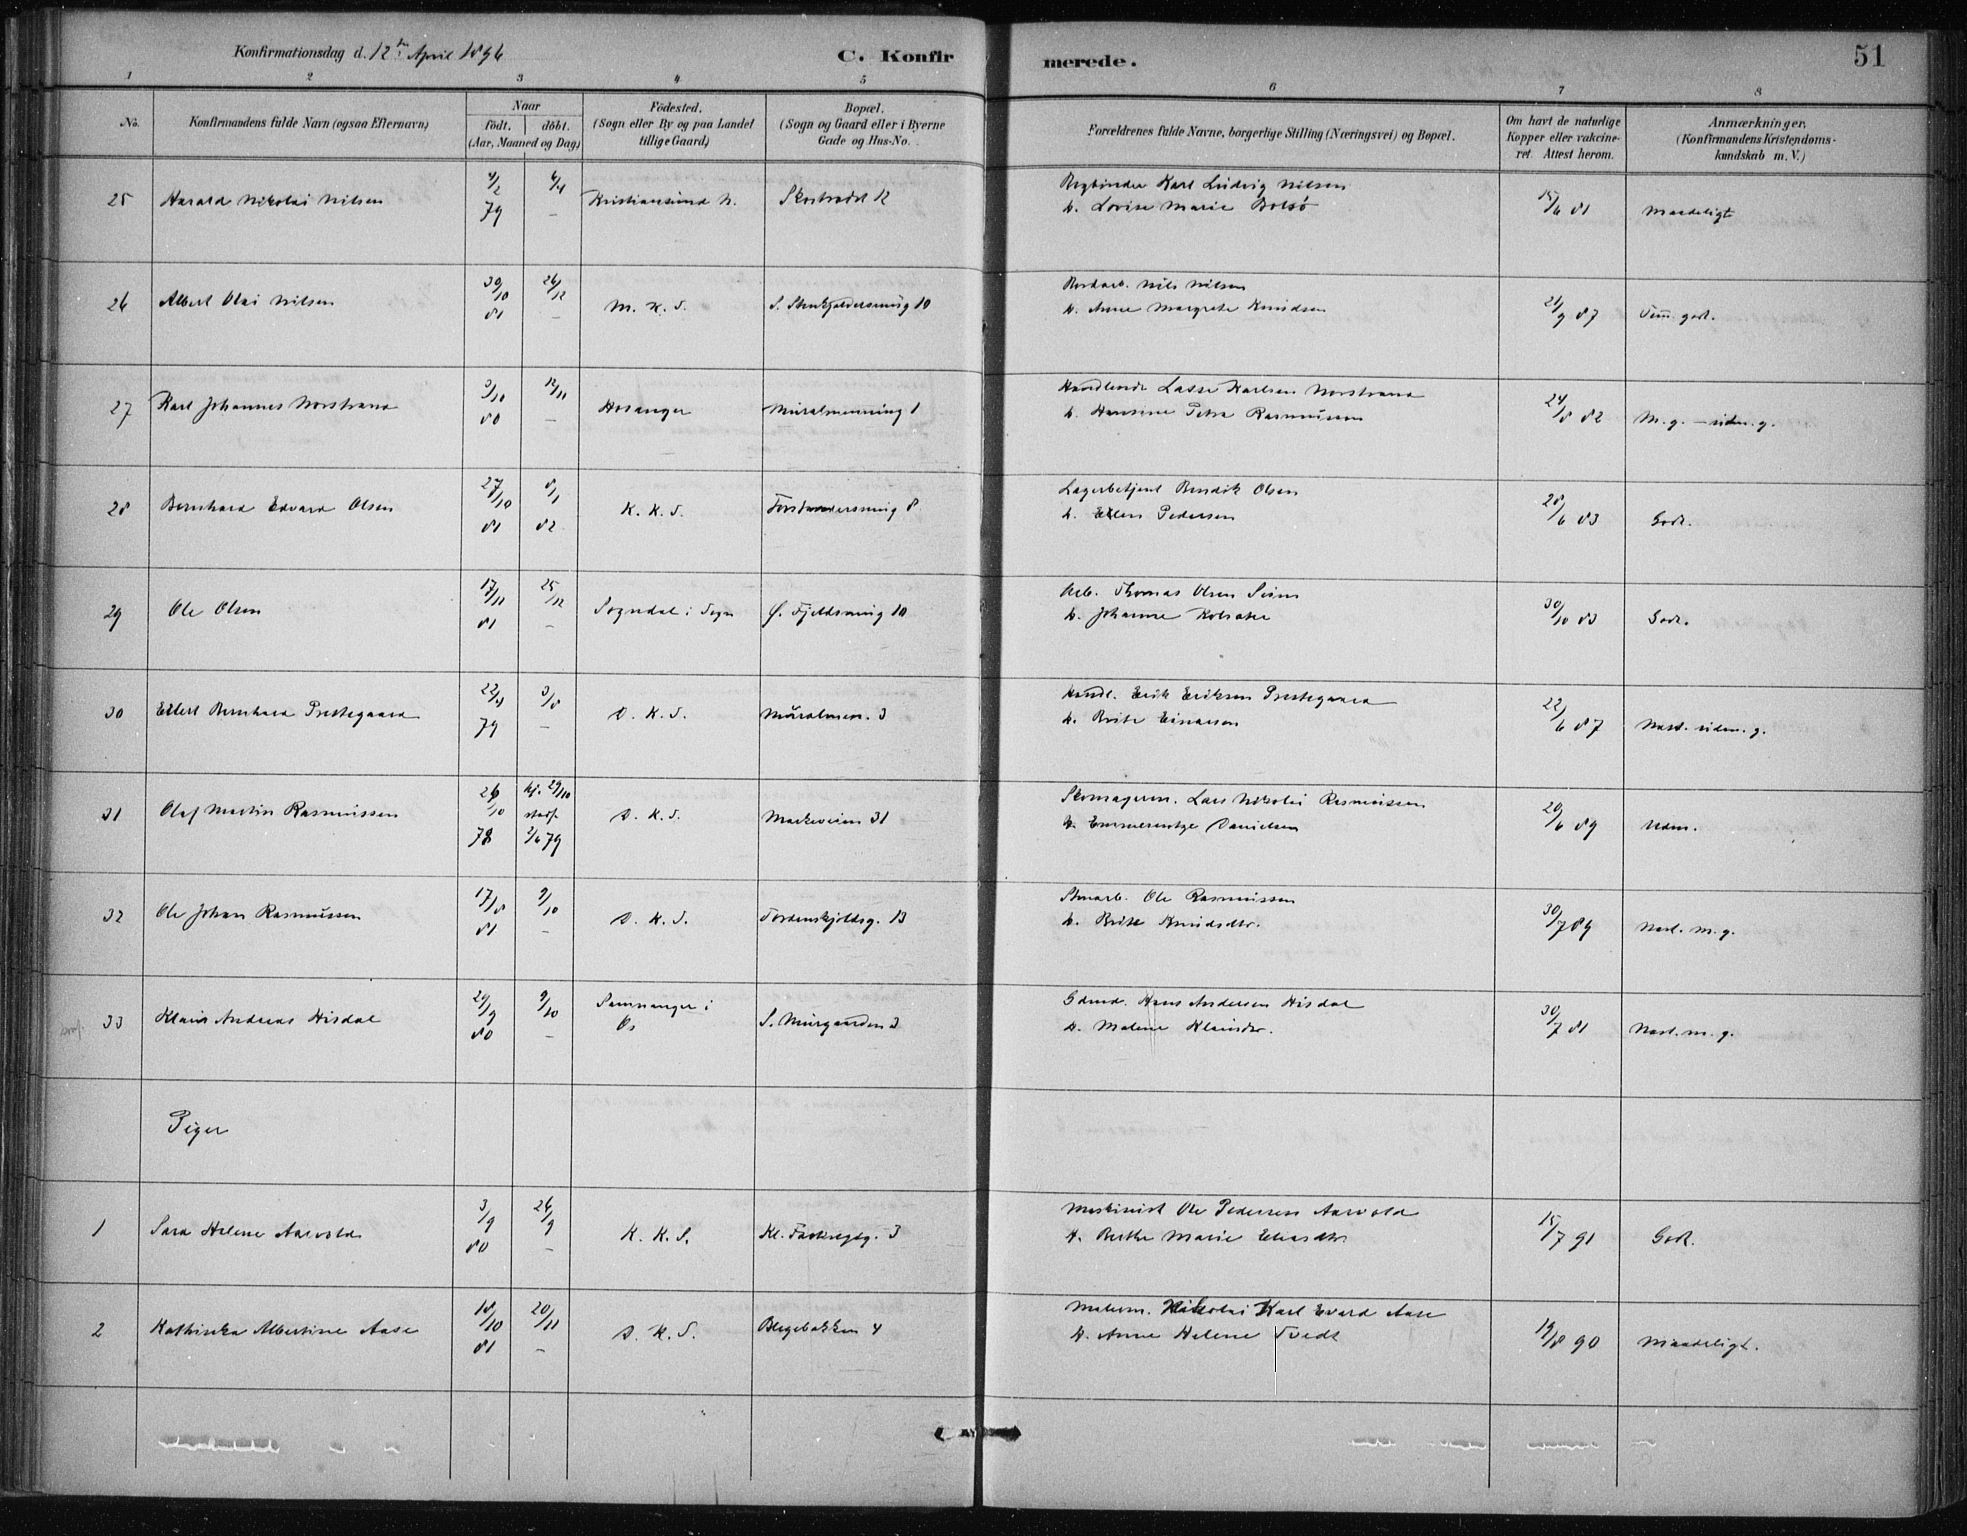 Konfirmationsdag d. 12te April 1896
C. Konfirmerede.
51
1 2 3 4 5 6 7 8
No.
Konfirmandens fulde Navn (ogsaa Efternavn)
Naar
födt. döbt.
(Aar, Maaned og Dag)
Födested.
(Sogn eller By og paa Landet
tillige Gaard)
Bopæl.
(Sogn og Gaard eller i Byerne
Gade og Hus-No.
Forældrenes fulde Navne, borgerlige Stilling (Næringsvei) og Bopæl.
Om havt de naturlige
Kopper eller vakcine-
ret. Attest herom.
Anmærkninger.
(Konfirmandens Kristendoms-
kundskab m. V.)
25 Harald Nikolai Nilsen 4/2 79 6/4 – Kristiansund N. Skostrædet 12
Karl Ludvig Nilsen
h. Lovise Marie Bolsö
15/6 81 Maadeligt
26 Albert Olai Nilsen 30/10 81 26/12 – M. K. S. 10
Nils Nilsen
h. Anne Margrete Knudsen
21/9 87 Tem. godt.
27 Karl Johannes Norstrand 3/10 80 12/11 – Hosanger Muralmenning 1
Handlende Lasse Karlsen Norstrand
h. Hansine Petra Rasmussen
24/8 82 M.g. – udm. g.
28 Bernhard Edvard Olsen 27/10 81 8/1 82 K. K. S. Forstandersmug 8
Lagerbetjent Bendik Olsen
h. Ellen Pedersen
28/6 83 Godt.
29 Ole Olsen 17/11 81 25/12 – Sogndal i Sogn Ø. Fjeldsmug 10
Arb. Thomas Olsen
h. Johanne
30/10 83 Godt.
30 Ellert Bernhard Prestegaard 22/4 79 3/8 – D. K. S. Muralmen. 3
Handl. Erik Eriksen Prestegaard
h. Brite Einarsen
22/6 87 Næst. udm. g.
31 Olaf Martin Rasmussen 26/10 78 hj. 29/10 stadf. 2/6 79 D. K. S. Markeveien 31
Skomagerm. Lars Nikolai Rasmussen
h. Emmerentze Danielsen
20/6 89 Udm.
32 Ole Johan Rasmussen 17/8 81 9/10 – D. K. S. Tordenskjoldsg. 13
Stenarb. Ole Rasmussen
h. Brite Knudsdtr.
30/7 84 Næst. m. g.
33 Klaus Andreas Hisdal 29/9 80 9/10 – Samnanger i
Os S. Murgaarden 3
Gdmd. Hans Andersen Hisdal
h. Malene Klausdtr.
30/7 81 Næst. m. g.
Piger
1 Sara Helene Aarvold 3/9 80 26/9 – K. K. S. Kl. 3
Maskinist Ole Pedersen Aarvold
h. Berthe Marie Eliasdtr.
15/7 91 Godt.
2 Kathinka Albertine Aase 18/10 81 20/11 – D. K. S. Blegebakken 4
Malerm. Nikolai Karl Evard Aase
h. Anne Helene Tvedt
19/8 90 Maadeligt.